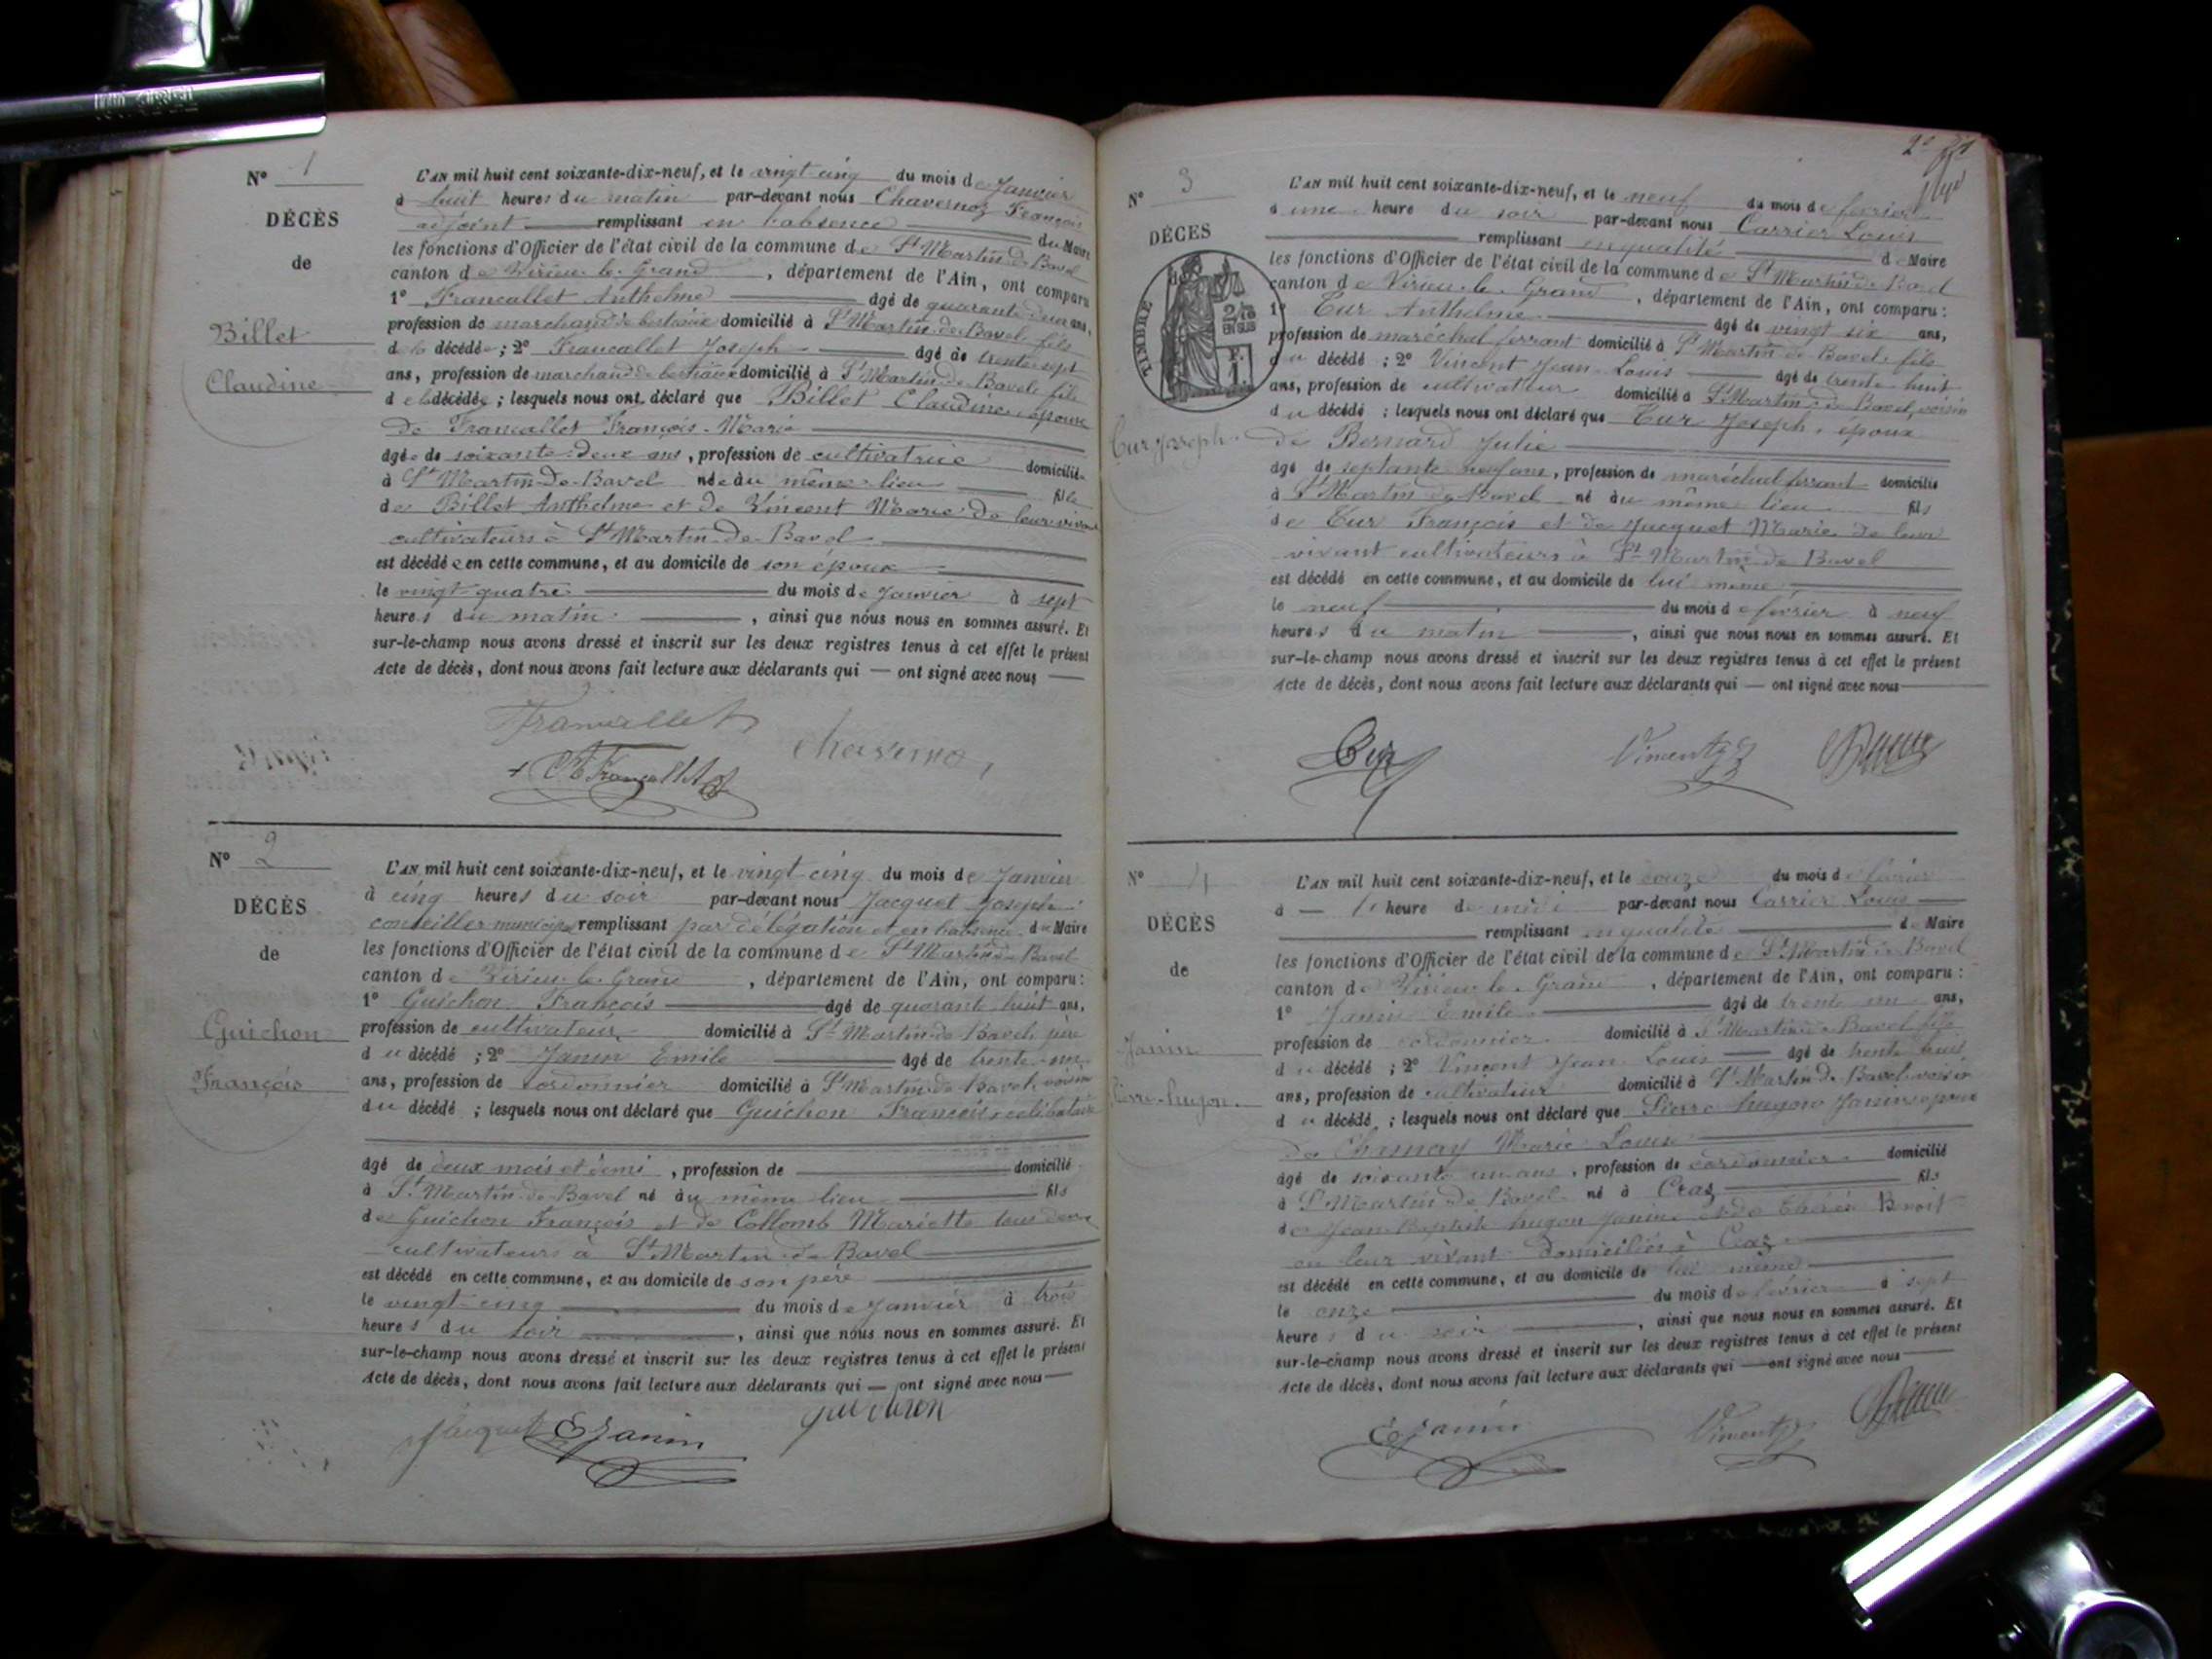 N° 1
DÉCÈS
de
Billet
Claudine
L'AN mil huit cent soixante-dix-neuf, et le vingt cinq du mois de Janvier
à huit heures du matin par-devant nous Chavernoz François
adjoint remplissant en l'absence du Maire
les fonctions d'Officier de l'état civil de la commune de St Martin de Bavel
canton de Virieu le Grand, département de l'Ain, ont comparu
1° Francallet Anthelme âgé de quarante deux ans,
profession de marchand de bestiaux domicilié à St Martin de Bavel, fils
de la décédée ; 2° Francallet Joseph âgé de trente sept
ans, profession de marchand de bestiaux domicilié à St Martin de Bavel, fils
de la décédée ; lesquels nous ont déclaré que Billet Claudine, épouse
de Francallet François-Marie
âgée de soixante-deux ans, profession de cultivatrice domiciliée
à St Martin-de-Bavel née au même lieu fille
de Billet Anthelme et de Vincent Marie de leur vivant
cultivateurs à St Martin-de-Bavel
est décédée en cette commune, et au domicile de son époux
le vingt-quatre du mois de Janvier à sept
heures du matin, ainsi que nous nous en sommes assuré. Et
sur-le-champ nous avons dressé et inscrit sur les deux registres tenus à cet effet le présent
Acte de décès, dont nous avons fait lecture aux déclarants qui — ont signé avec nous —
Francallet
Francallet
N° 2
DÉCÈS
de
Guichon
François
L'AN mil huit cent soixante-dix-neuf, et le vingt cinq du mois de Janvier
à cinq heures du soir par-devant nous Jacquet Joseph
conseiller municipal remplissant par délégation et en l'absence du Maire
les fonctions d'Officier de l'état civil de la commune de St Martin de Bavel
canton de Virieu le Grand, département de l'Ain, ont comparu:
1° Guichon François âgé de quarante huit ans,
profession de cultivateur domicilié à St Martin de Bavel, père
du décédé ; 2° Janin Emile âgé de trente-un
ans, profession de cordonnier domicilié à St Martin de Bavel, voisin
du décédé ; lesquels nous ont déclaré que Guichon François, célibataire
âgé de deux mois et demi, profession de domicilié
à St Martin-de-Bavel né au même lieu fils
de Guichon François et de Collomb Mariette tous deux
cultivateurs à St Martin-de-Bavel
est décédé en cette commune, et au domicile de son père
le vingt-cinq du mois de Janvier à trois
heures du soir, ainsi que nous nous en sommes assuré. Et
sur-le-champ nous avons dressé et inscrit sur les deux registres tenus à cet effet le présent
Acte de décès, dont nous avons fait lecture aux déclarants qui — ont signé avec nous —
Jacquet E Janin Guichon
N° 3
DÉCÈS
TIMBRE
Cur Joseph
L'AN mil huit cent soixante-dix-neuf, et le neuf du mois de février
à une heure du soir par-devant nous Carrier Louis
remplissant en qualité de Maire
les fonctions d'Officier de l'état civil de la commune de St Martin de Bavel
canton de Virieu-le-Grand, département de l'Ain, ont comparu:
1° Cur Anthelme âgé de vingt six ans,
profession de maréchal ferrant domicilié à St Martin de Bavel, fils
du décédé ; 2° Vincent Jean-Louis âgé de trente huit
ans, profession de cultivateur domicilié à St Martin-de-Bavel, voisin
du décédé ; lesquels nous ont déclaré que Cur Joseph, époux
de Bernard Julie
âgé de septante neuf ans, profession de maréchal ferrant domicilié
à St Martin de Bavel né au même lieu fils
de Cur François et de Jacquet Marie de leur
vivant cultivateurs à St Martin-de-Bavel
est décédé en cette commune, et au domicile de lui même
le neuf du mois de février à neuf
heures du matin, ainsi que nous nous en sommes assuré. Et
sur-le-champ nous avons dressé et inscrit sur les deux registres tenus à cet effet le présent
Acte de décès, dont nous avons fait lecture aux déclarants qui — ont signé avec nous —
Cur Vincent
N° 4
DÉCÈS
de
Janin
Pierre-hugon
L'AN mil huit cent soixante-dix-neuf, et le du mois de février
à — heure de midi par-devant nous Carrier Louis
remplissant en qualité de Maire
les fonctions d'Officier de l'état civil de la commune de St Martin de Bavel
canton de Virieu le Grand, département de l'Ain, ont comparu:
1° Janin Emile âgé de trente un ans,
profession de cordonnier domicilié à St Martin de Bavel fils
du décédé ; 2° Vincent Jean-Louis âgé de trente huit
ans, profession de cultivateur domicilié à St Martin de Bavel voisin
du décédé ; lesquels nous ont déclaré que Pierre hugon Janin époux
de Marie Louise
âgé de soixante un ans, profession de cordonnier domicilié
à St Martin de Bavel né à Craz fils
de Jean Baptiste hugon Janin et de Benoit
en leur vivant domiciliés à Craz
est décédé en cette commune, et au domicile de lui même
le onze du mois de février à sept
heures du soir, ainsi que nous nous en sommes assuré. Et
sur-le-champ nous avons dressé et inscrit sur les deux registres tenus à cet effet le présent
Acte de décès, dont nous avons fait lecture aux déclarants qui — ont signé avec nous —
E Janin Vincent